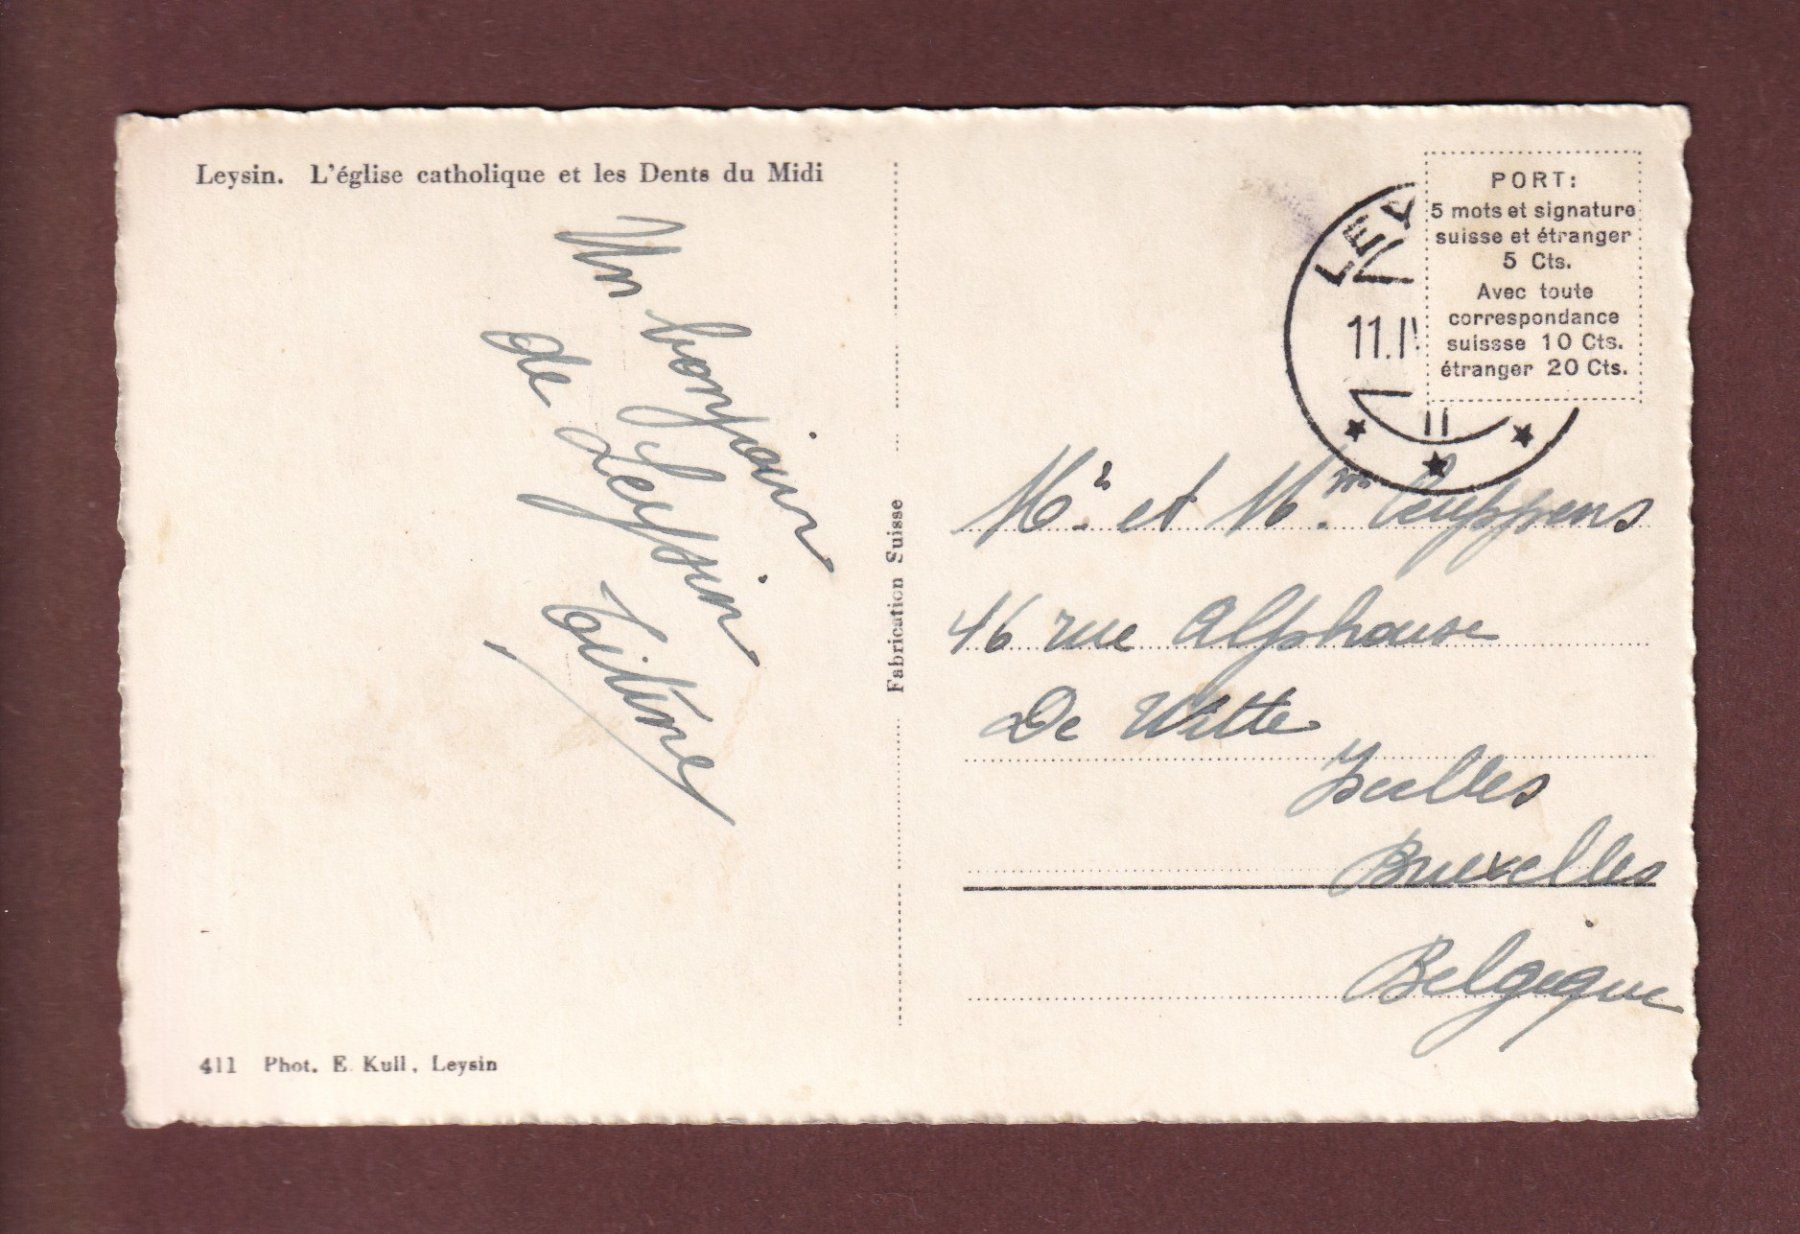 Leysin. L'église catholique et les Dents du Midi
Un bonjour
de Leysin
Titine
Fabrication Suisse
411 Phot. E. Kull, Leysin
LEY
11.IV
PORT:
5 mots et signature
suisse et étranger
5 Cts.
Avec toute
correspondance
suissse 10 Cts.
étranger 20 Cts.
Mr. et Mm. Ceuppens
46 rue Alphonse
De Witte
Ixelles
Bruxelles
Belgique